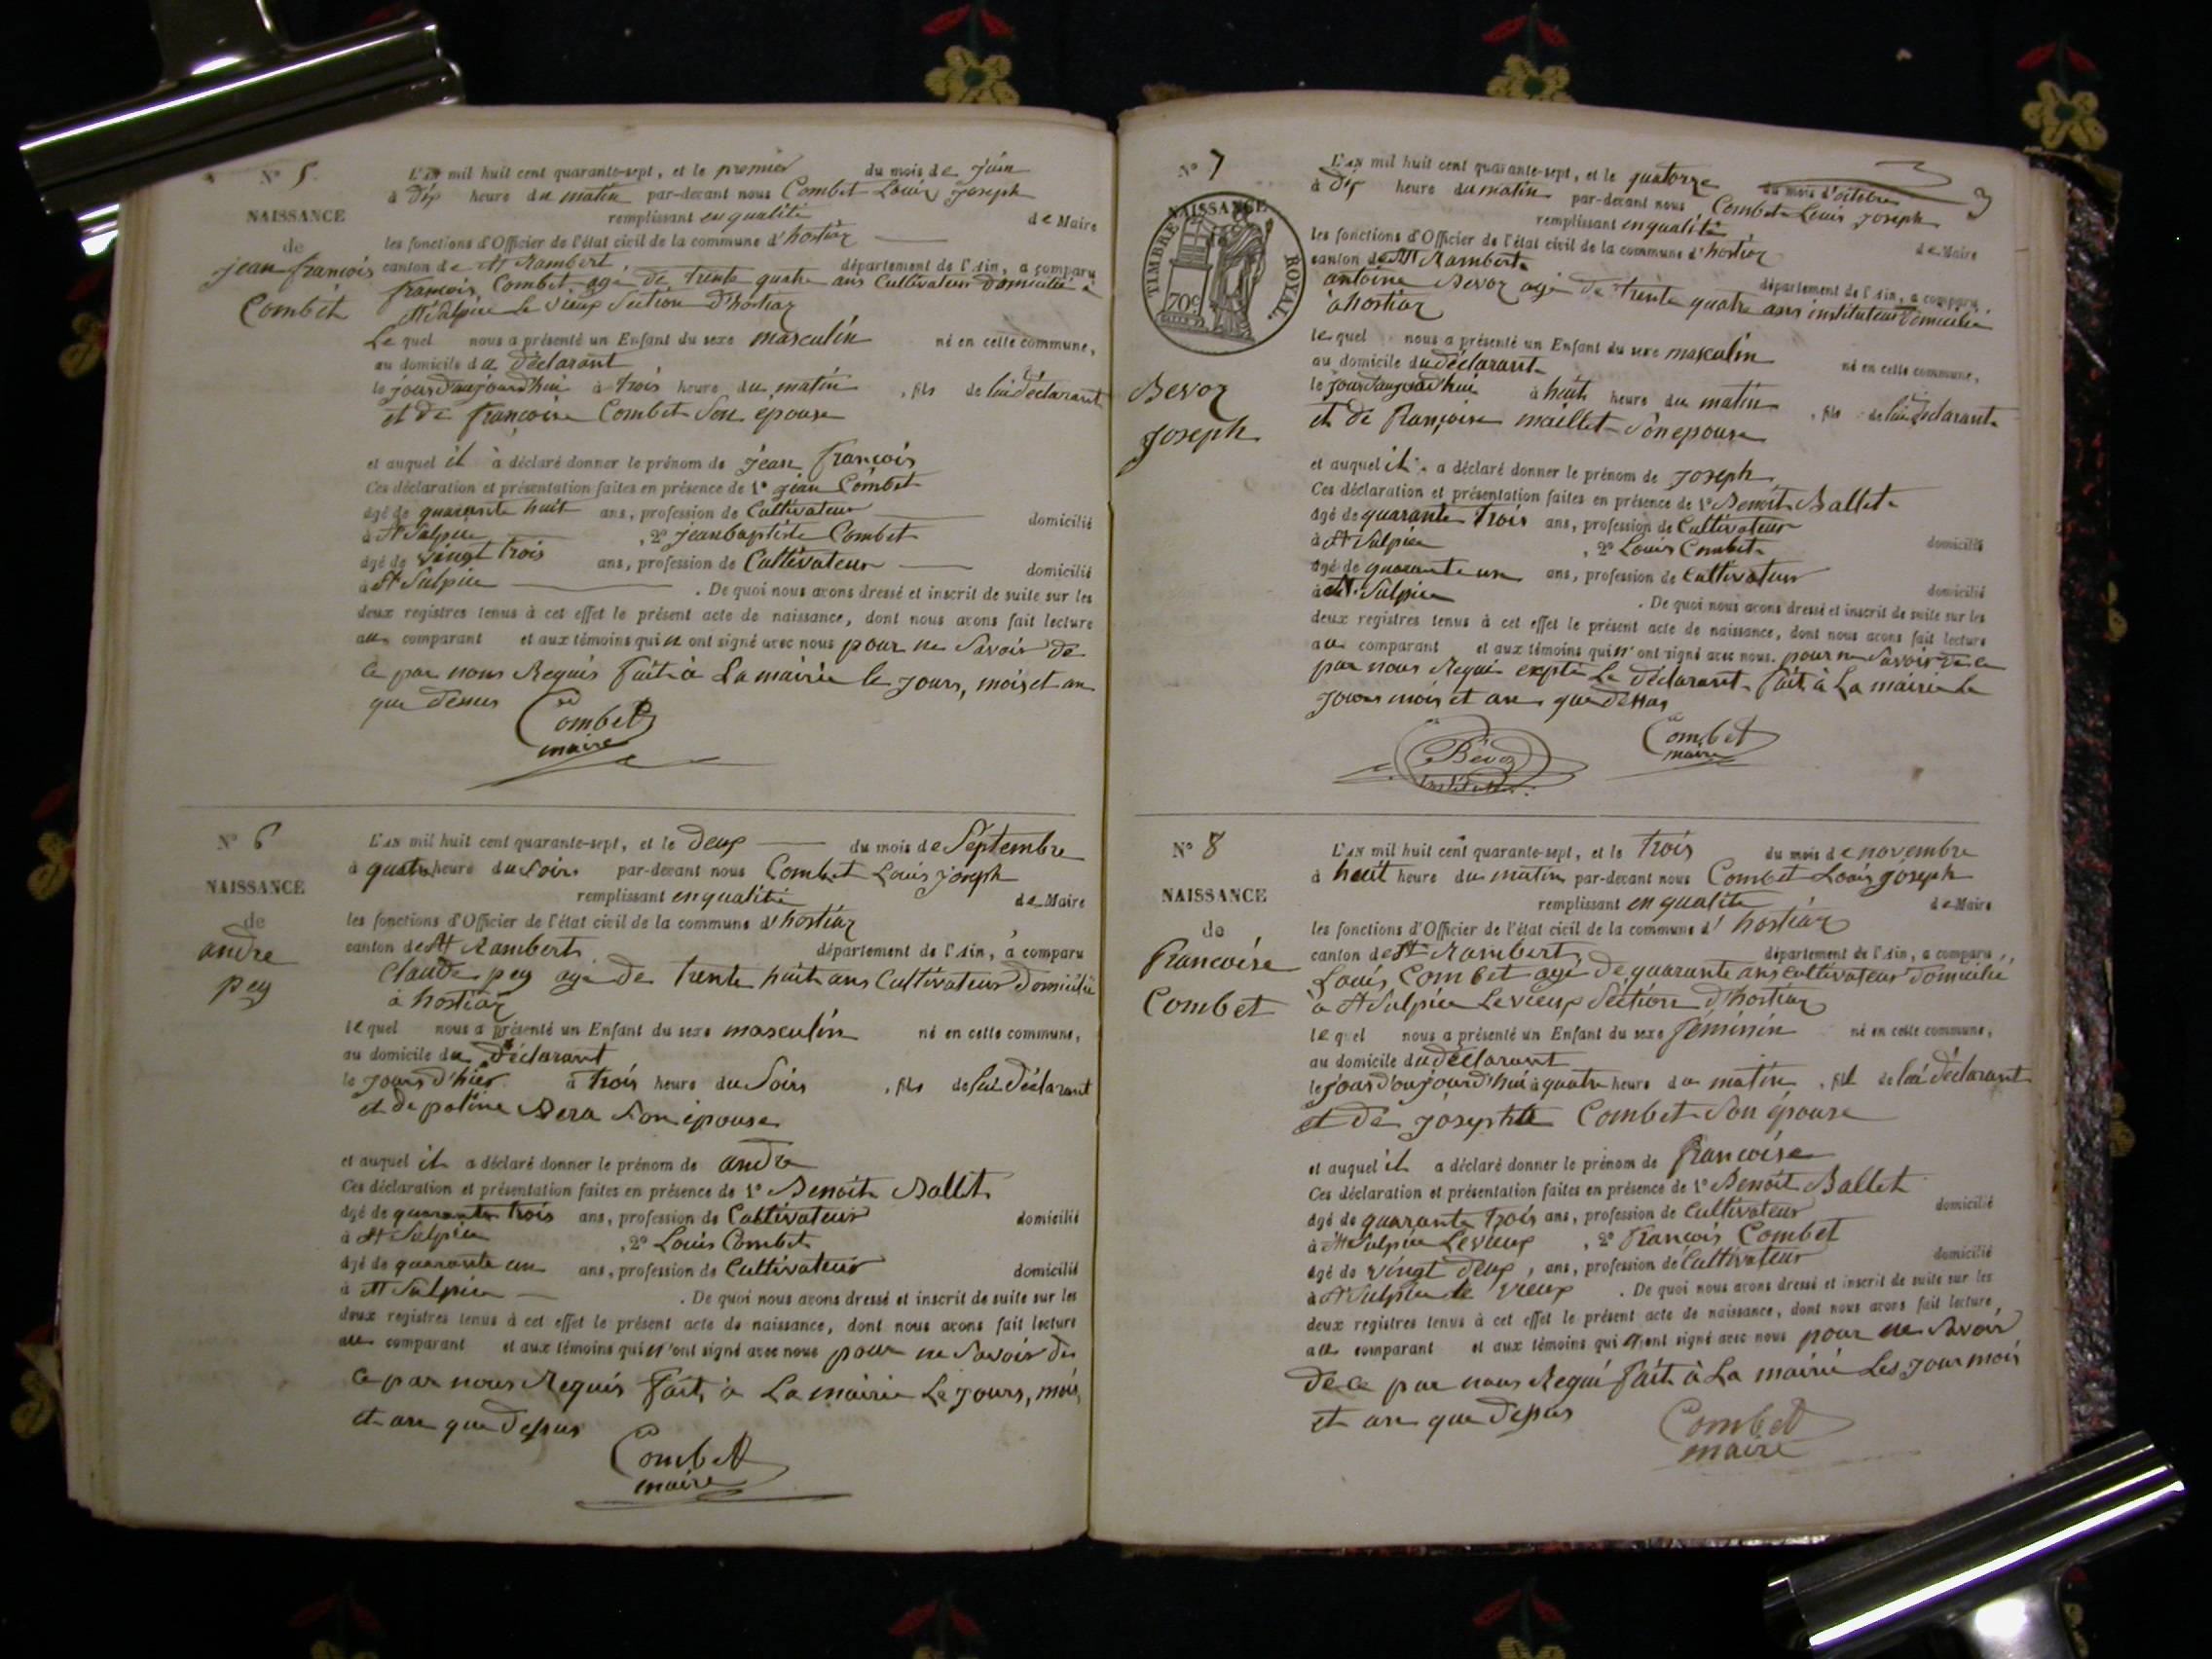 N° 5.
NAISSANCE
de
jean françois
Combet
L'AN mil huit cent quarante-sept, et le premier du mois de juin
à dix heure du matin par-devant nous Combet Louis Joseph
remplissant en qualité de Maire
les fonctions d'Officier de l'état civil de la commune d'hostiaz
canton de St Rambert, département de l'Ain, a comparu
françois Combet agé de trente quatre ans Cultivateur domicilié à
St Sulpice le vieux Section d'hostiaz
Le quel nous a présenté un Enfant du sexe masculin né en cette commune,
au domicile du déclarant
le jour d'aujourd'hui à trois heure du matin, fils de lui déclarant
et de françoise Combet son épouse
et auquel il a déclaré donner le prénom de jean françois
Ces déclaration et présentation faites en présence de 1° jean Combet
âgé de quarante huit ans, profession de Cultivateur domicilié
à St Sulpice, 2° jean baptiste Combet
âgé de vingt trois ans, profession de Cultivateur domicilié
à St Sulpice. De quoi nous avons dressé et inscrit de suite sur les
deux registres tenus à cet effet le présent acte de naissance, dont nous avons fait lecture
au comparant et aux témoins qui n'ont signé avec nous pour ne Savoir de
ce par nous Requis fait à La mairie le jours, mois et an
que dessus
Combet
maire
N° 6
NAISSANCE
de
andre
pey
L'AN mil huit cent quarante-sept, et le deux du mois de Septembre
à quatre heure du Soir par-devant nous Combet Louis joseph
remplissant en qualité de Maire
les fonctions d'Officier de l'état civil de la commune d'hostiaz
canton de St Rambert département de l'Ain, a comparu
Claude pey agé de trente huit ans Cultivateur Domicilié
à hostiaz
le quel nous a présenté un Enfant du sexe masculin né en cette commune,
au domicile du déclarant
le jours d'hier à trois heure du Soir, fils de lui déclarant
et de poline Son épouse
et auquel il a déclaré donner le prénom de andre
Ces déclaration et présentation faites en présence de 1° Benoit Ballet
âgé de quarante trois ans, profession de Cultivateur domicilié
à St Sulpice, 2° Louis Combet
âgé de quarante un ans, profession de Cultivateur domicilié
à St Sulpice. De quoi nous avons dressé et inscrit de suite sur les
deux registres tenus à cet effet le présent acte de naissance, dont nous avons fait lecture
au comparant et aux témoins qui n'ont signé avec nous pour ne Savoir de
ce par nous Requis fait à La mairie Le jours, mois
et an que dessus
Combet
maire
3
N° 7
NAISSANCE
TIMBRE ROYAL.
70c
Bevoz
Joseph
L'AN mil huit cent quarante-sept, et le quatorze du mois d'octobre
à dix heure du matin par-devant nous Combet Louis Joseph
remplissant en qualité de Maire
les fonctions d'Officier de l'état civil de la commune d'hostiaz
canton de St Rambert département de l'Ain, a comparu
antoine Bevoz agé de trente quatre ans instituteur domicilié
à hostiaz
le quel nous a présenté un Enfant du sexe masculin né en cette commune,
au domicile du déclarant
le jour d'aujourd'hui à huit heure du matin, fils de lui déclarant
et de françoise maillet Son epouse
et auquel il a déclaré donner le prénom de Joseph
Ces déclaration et présentation faites en présence de 1° Benoit Ballet
âgé de quarante trois ans, profession de Cultivateur domicilié
à St Sulpice, 2° Louis Combet
âgé de quarante un ans, profession de Cultivateur domicilié
à St Sulpice. De quoi nous avons dressé et inscrit de suite sur les
deux registres tenus à cet effet le présent acte de naissance, dont nous avons fait lecture
au comparant et aux témoins qui n'ont signé avec nous. pour ne Savoir de ce
par nous Requi expté Le déclarant fait à La mairie le
jours mois et an que dessus
Bévoz
instituteur
Combet
maire
N° 8
NAISSANCE
de
francoise
Combet
L'AN mil huit cent quarante-sept, et le trois du mois de novembre
à huit heure du matin par-devant nous Combet Louis joseph
remplissant en qualité de Maire
les fonctions d'Officier de l'état civil de la commune d'hostiaz
canton de St Rambert, département de l'Ain, a comparu
Louis Combet agé de quarante ans cultivateur domicilié
à St Sulpice Le vieux Séction d'hostiaz
le quel nous a présenté un Enfant du sexe féminin né en cette commune,
au domicile du déclarant
le jour d'oujourd'hui à quatre heure du matin, fil de lui déclarant
et de josephte Combet Son épouse
et auquel il a déclaré donner le prénom de francoise
Ces déclaration et présentation faites en présence de 1° Benoit Ballet
âgé de quarante trois ans, profession de Cultivateur domicilié
à St Sulpice Le vieux, 2° françois Combet
âgé de vingt deux, ans, profession de Cultivateur domicilié
à St Sulpice le vieux. De quoi nous avons dressé et inscrit de suite sur les
deux registres tenus à cet effet le présent acte de naissance, dont nous avons fait lecture,
au comparant et aux témoins qui n'ont signé avec nous pour ne Savoir
de ce par nous Requi fait à La mairie Les jour mois
et an que dessus
Combet
maire